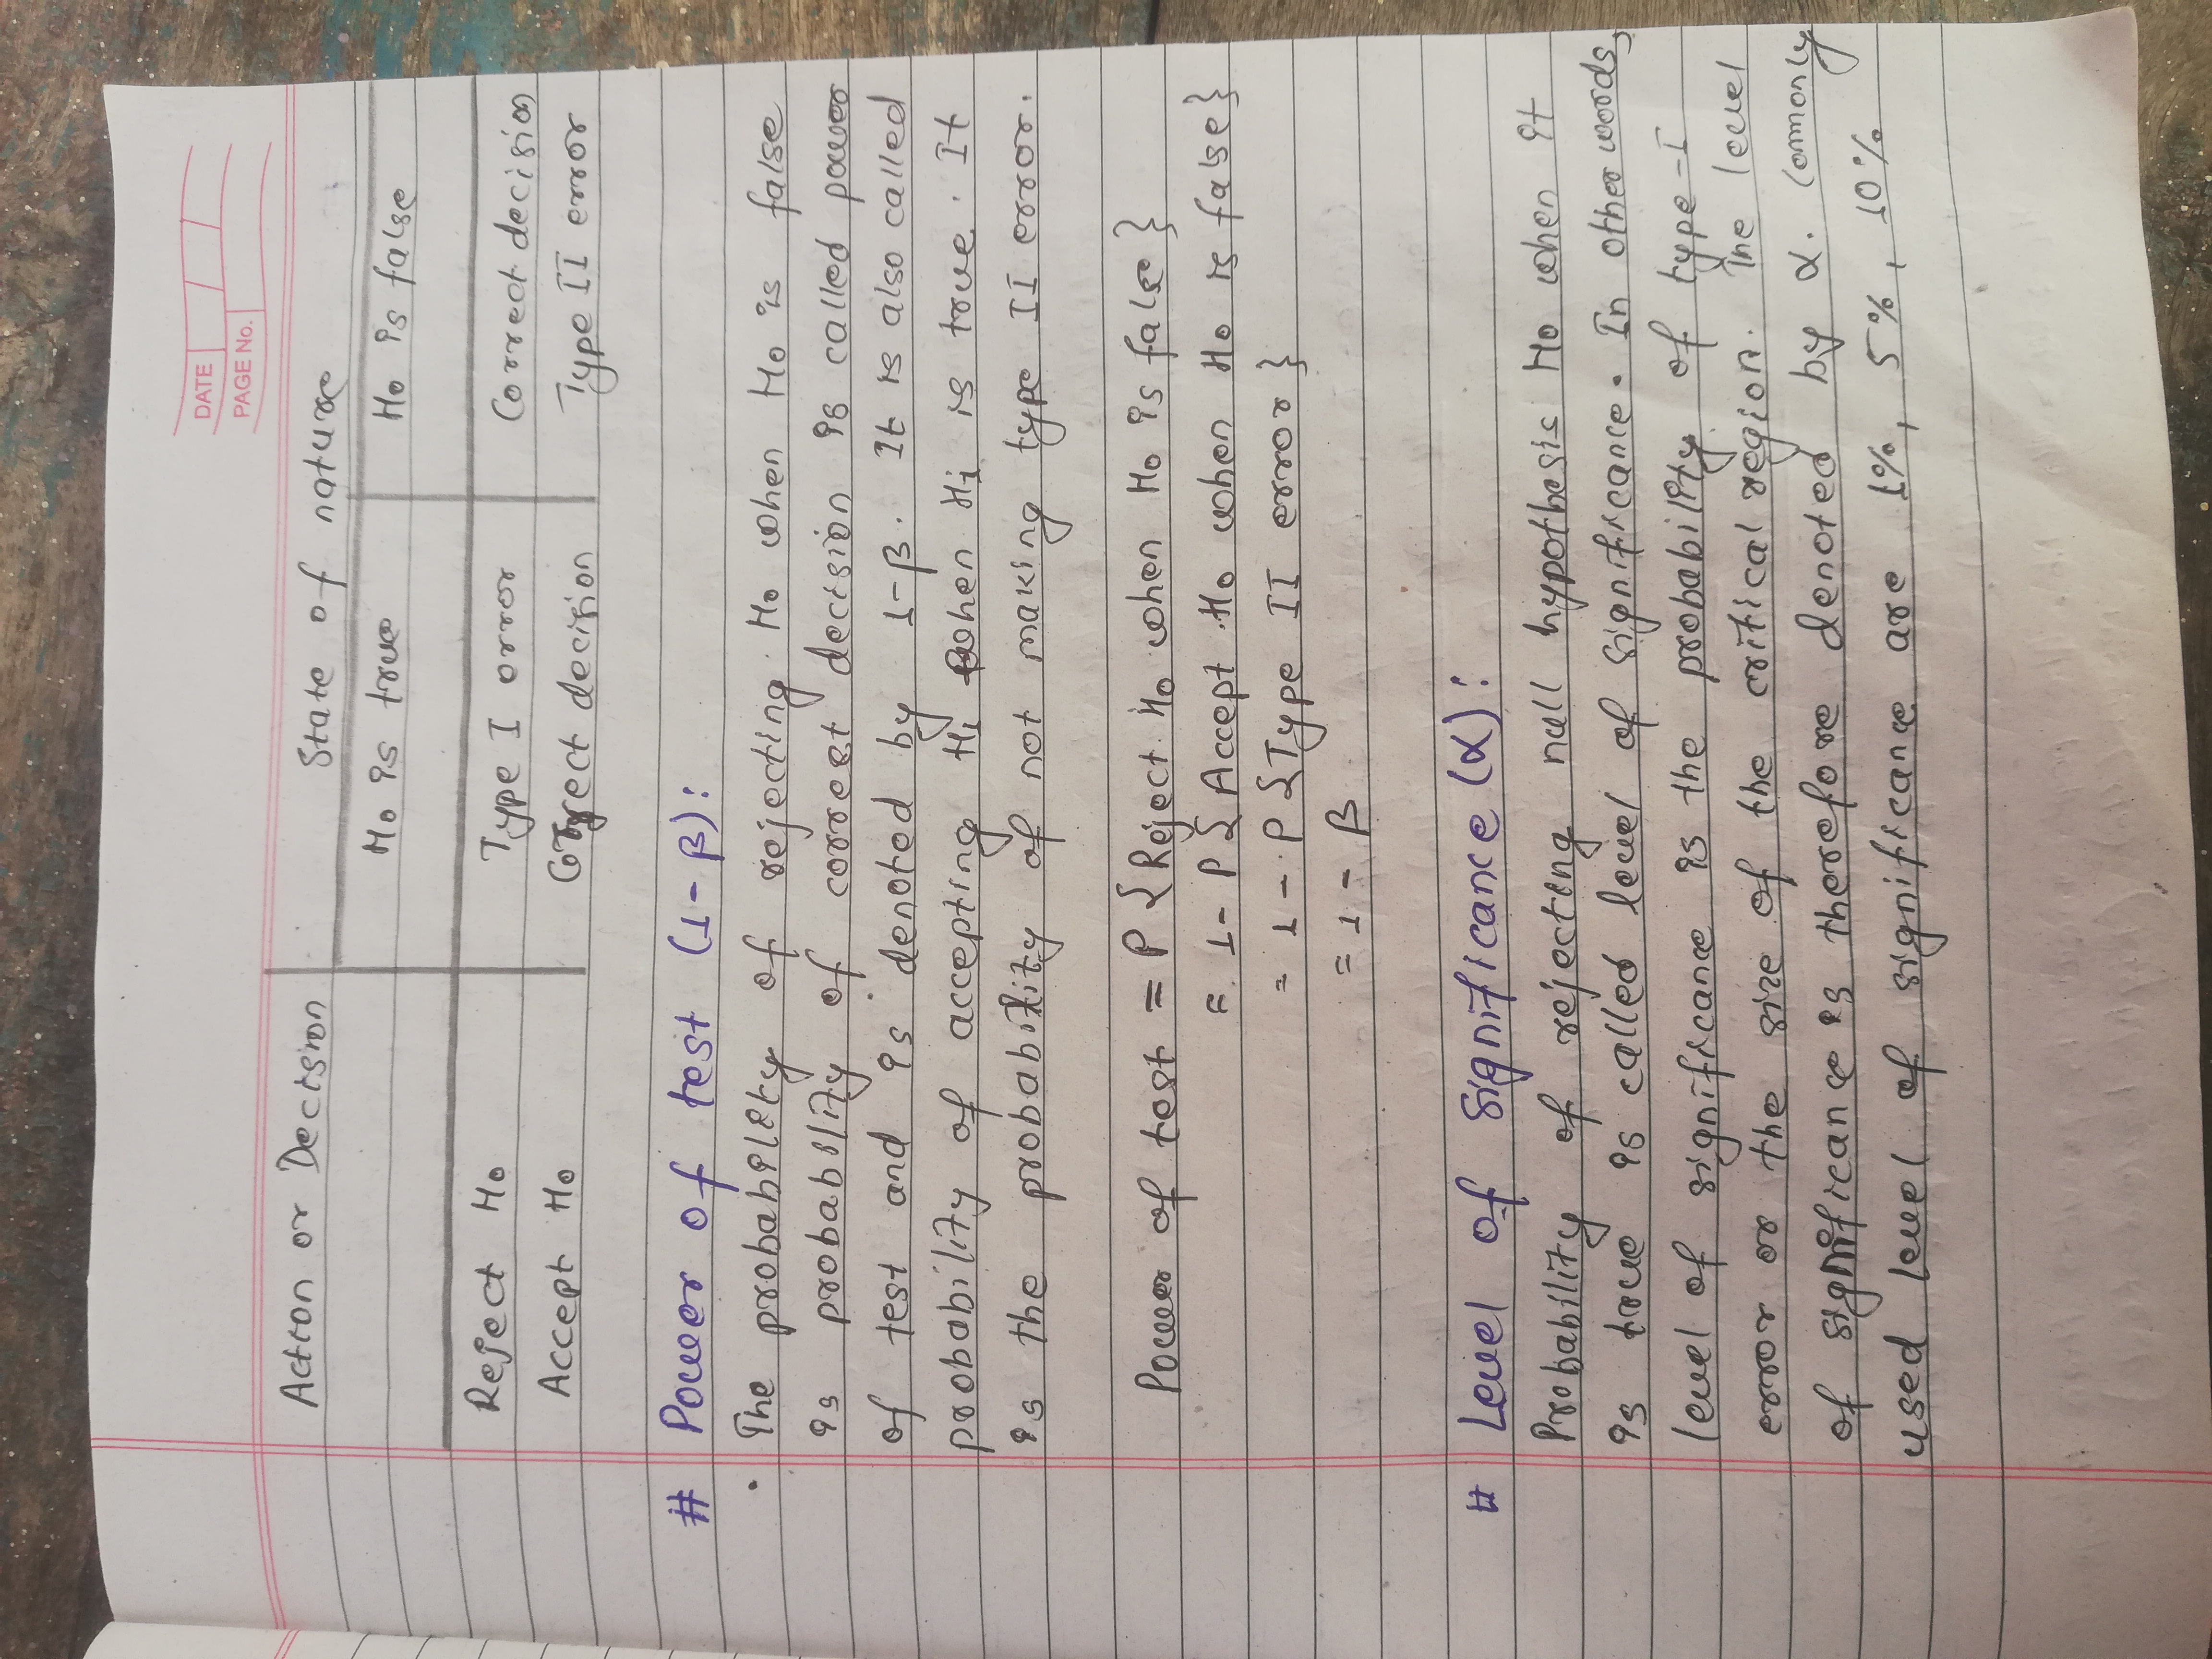 DATE
PAGE No.
Action or Decision State of nature
Ho is true Ho is false
Reject Ho Type I error Correct decision
Accept Ho Correct decision Type II error
# Power of test (1-β):
• The probability of rejecting Ho when Ho is false
is probability of correct decision is called power
of test and is denoted by 1-β. It is also called
probability of accepting H1 when H1 is true. It
is the probability of not making type II error.
Power of test = P {Reject Ho when Ho is false}
= 1- P {Accept Ho when Ho is false}
= 1 - P {Type II error}
= 1 - β
# Level of significance (α):
Probability of rejecting null hypothesis Ho when it
is true is called level of significance. In other words,
level of significance is the probability of type-I
error or the size of the critical region. The level
of significance is therefore denoted by α. Commonly
used level of significance are 1%, 5%, 10%